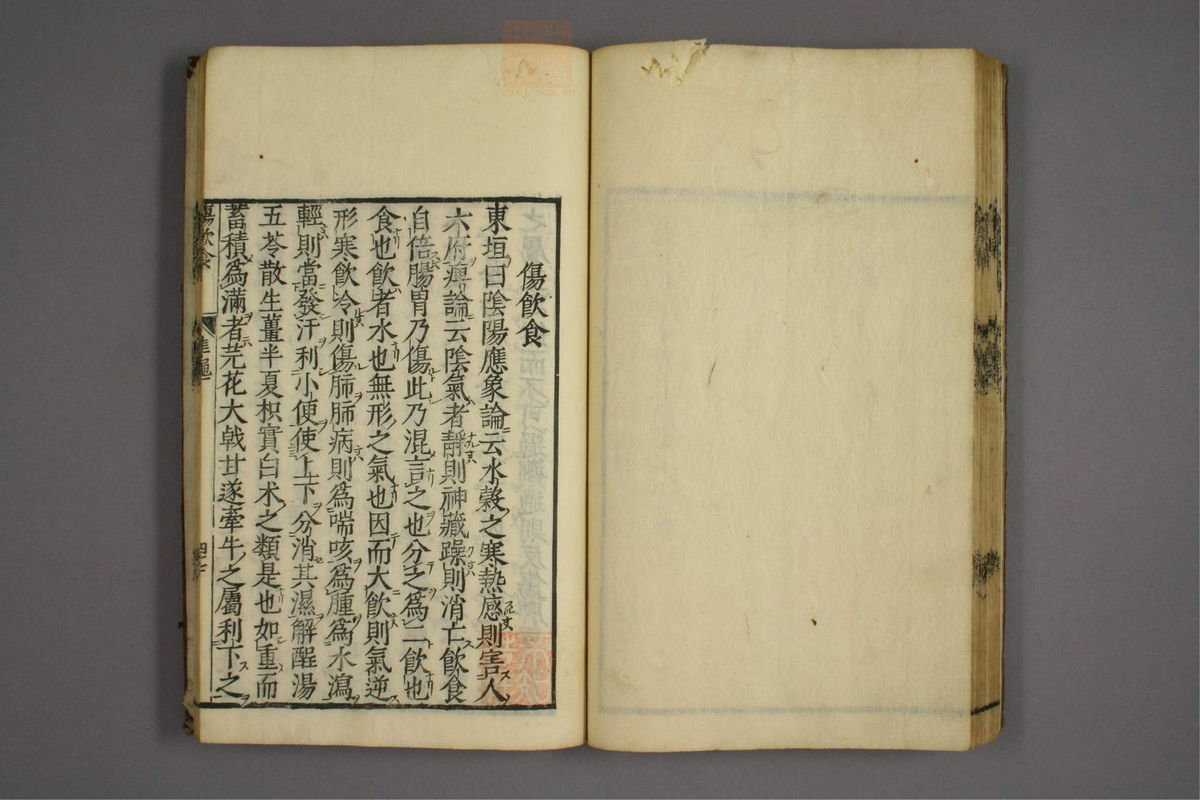 傷飲食
東垣曰陰陽應象論云水穀之寒熱感則害人
六府痺論云陰氣者靜則神藏躁則消亡飲食
自倍腸胃乃傷此乃混言之也分之為二飲也
食也飲者水也無形之氣也因而大飲則氣逆
形寒飲冷則傷肺肺病則為喘咳為腫為水瀉
輕則當發汗利小使使上下分消其濕解酲湯
五苓散生薑半夏枳實白术之類是也如重而
蓄積為滿者芫花大戟甘遂牽牛之屬利下之
傷飲食